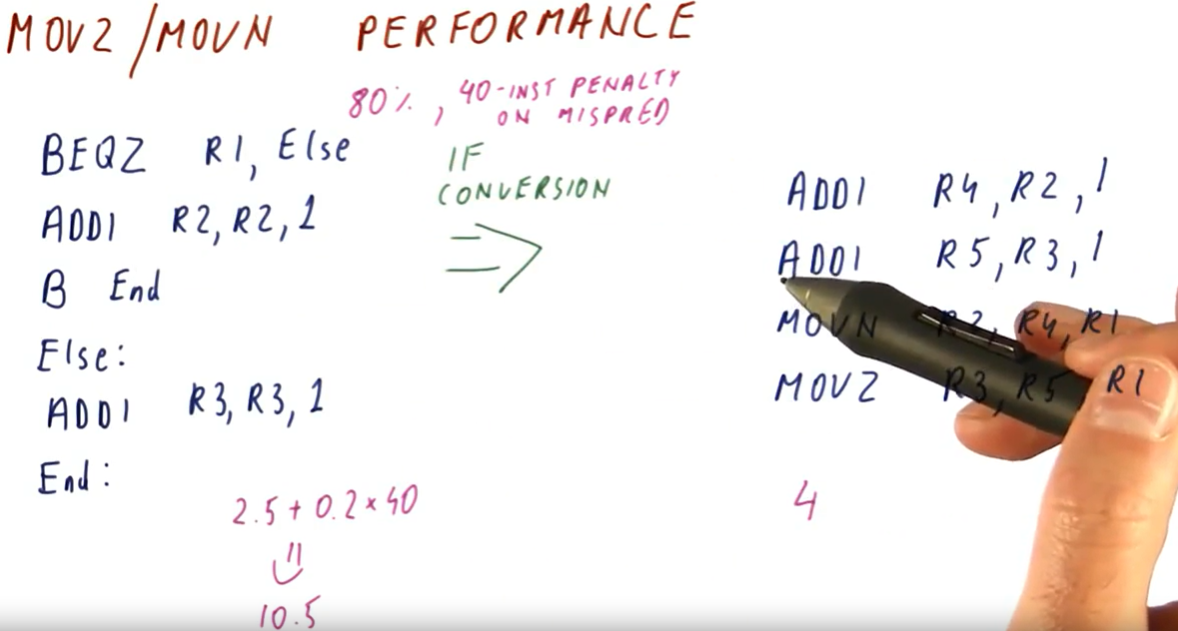 MOVZ/MOVN PERFORMANCE
80%, 40-INST PENALTY
ON MISPRED
BEQZ R1, Else
ADDI R2, R2, 1
B End
Else:
ADDI R3, R3, 1
End:
2.5 + 0.2 × 40
=
10.5
IF
CONVERSION
ADDI R4, R2, 1
ADDI R5, R3, 1
MOVN R2, R4, R1
MOVZ R3, R5, R1
4